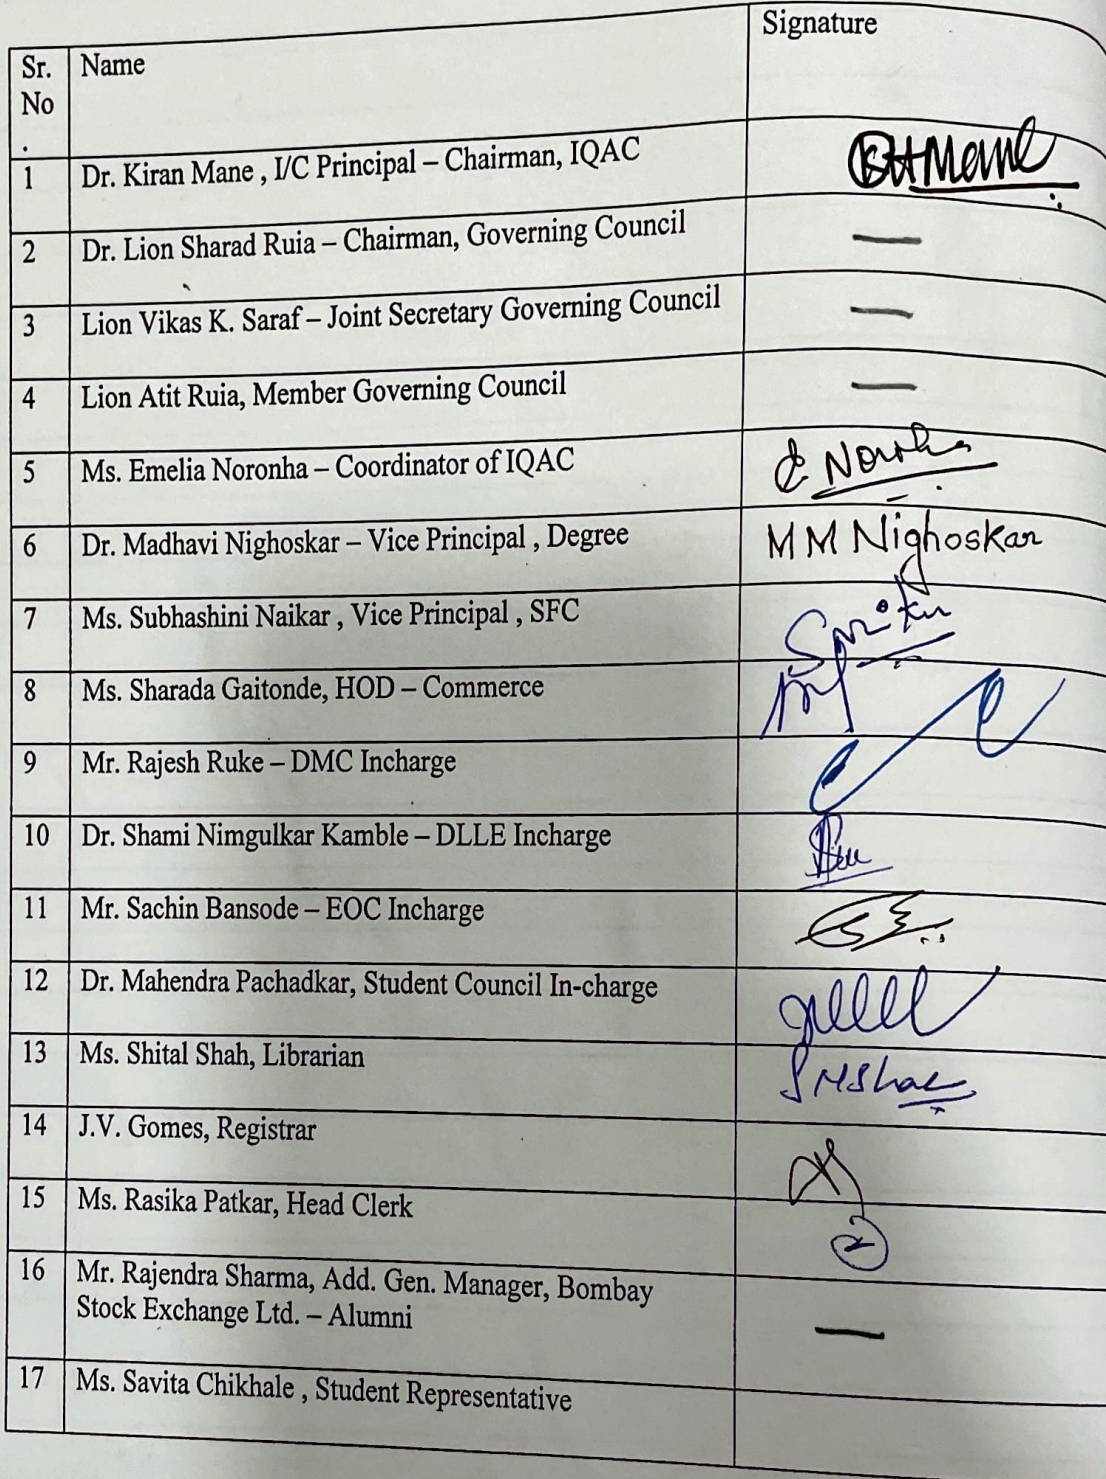 Signature
Sr. Name
No
.
1 Dr. Kiran Mane , I/C Principal – Chairman, IQAC Mane
2 Dr. Lion Sharad Ruia – Chairman, Governing Council —
3 Lion Vikas K. Saraf – Joint Secretary Governing Council —
4 Lion Atit Ruia, Member Governing Council —
5 Ms. Emelia Noronha – Coordinator of IQAC E Noronha
6 Dr. Madhavi Nighoskar – Vice Principal , Degree M M Nighoskar
7 Ms. Subhashini Naikar , Vice Principal , SFC
8 Ms. Sharada Gaitonde, HOD – Commerce
9 Mr. Rajesh Ruke – DMC Incharge
10 Dr. Shami Nimgulkar Kamble – DLLE Incharge
11 Mr. Sachin Bansode – EOC Incharge
12 Dr. Mahendra Pachadkar, Student Council In-charge
13 Ms. Shital Shah, Librarian
14 J.V. Gomes, Registrar
15 Ms. Rasika Patkar, Head Clerk
16 Mr. Rajendra Sharma, Add. Gen. Manager, Bombay
Stock Exchange Ltd. – Alumni —
17 Ms. Savita Chikhale , Student Representative